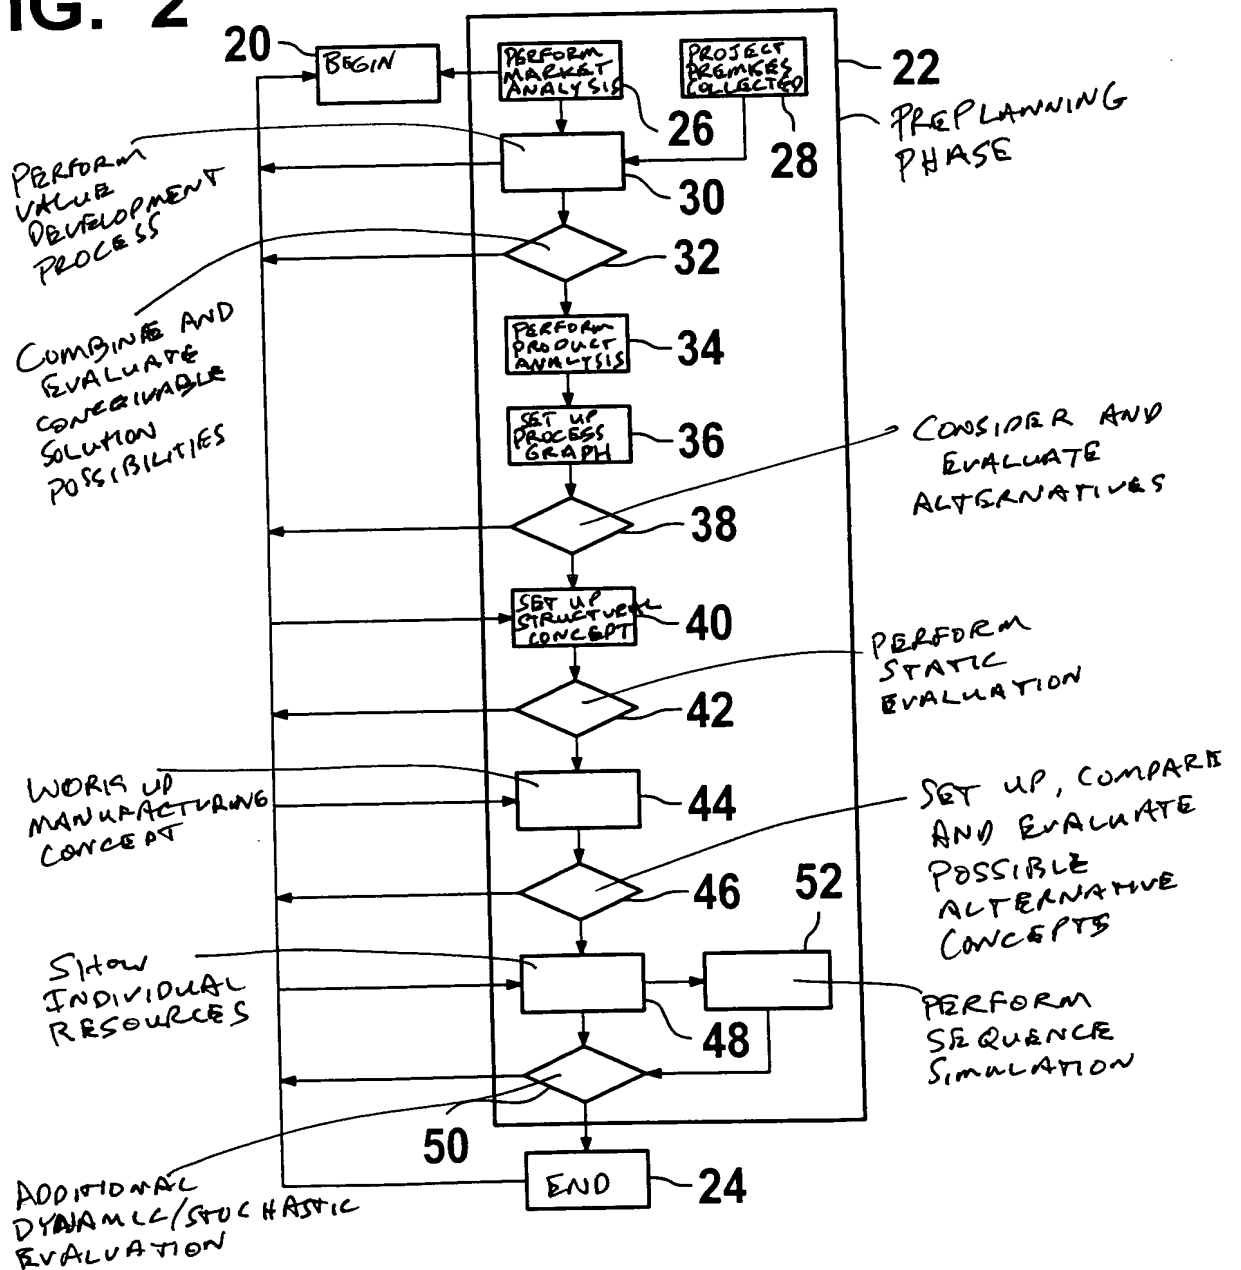 FIG. 2
20
BEGIN
PERFORM
MARKET
ANALYSIS
26
PROJECT
PREMISES
COLLECTED
28
22
PREPLANNING
PHASE
PERFORM
VALUE
DEVELOPMENT
PROCESS
30
32
COMBINE AND
EVALUATE
CONCEIVABLE
SOLUTION
POSSIBILITIES
PERFORM
PRODUCT
ANALYSIS
34
SET UP
PROCESS
GRAPH
36
CONSIDER AND
EVALUATE
ALTERNATIVES
38
SET UP
STRUCTURAL
CONCEPT
40
PERFORM
STATIC
EVALUATION
42
WORK UP
MANUFACTURING
CONCEPT
44
SET UP, COMPARE
AND EVALUATE
POSSIBLE
ALTERNATIVE
CONCEPTS
46
52
SHOW
INDIVIDUAL
RESOURCES
48
PERFORM
SEQUENCE
SIMULATION
50
END
24
ADDITIONAL
DYNAMIC/STOCHASTIC
EVALUATION